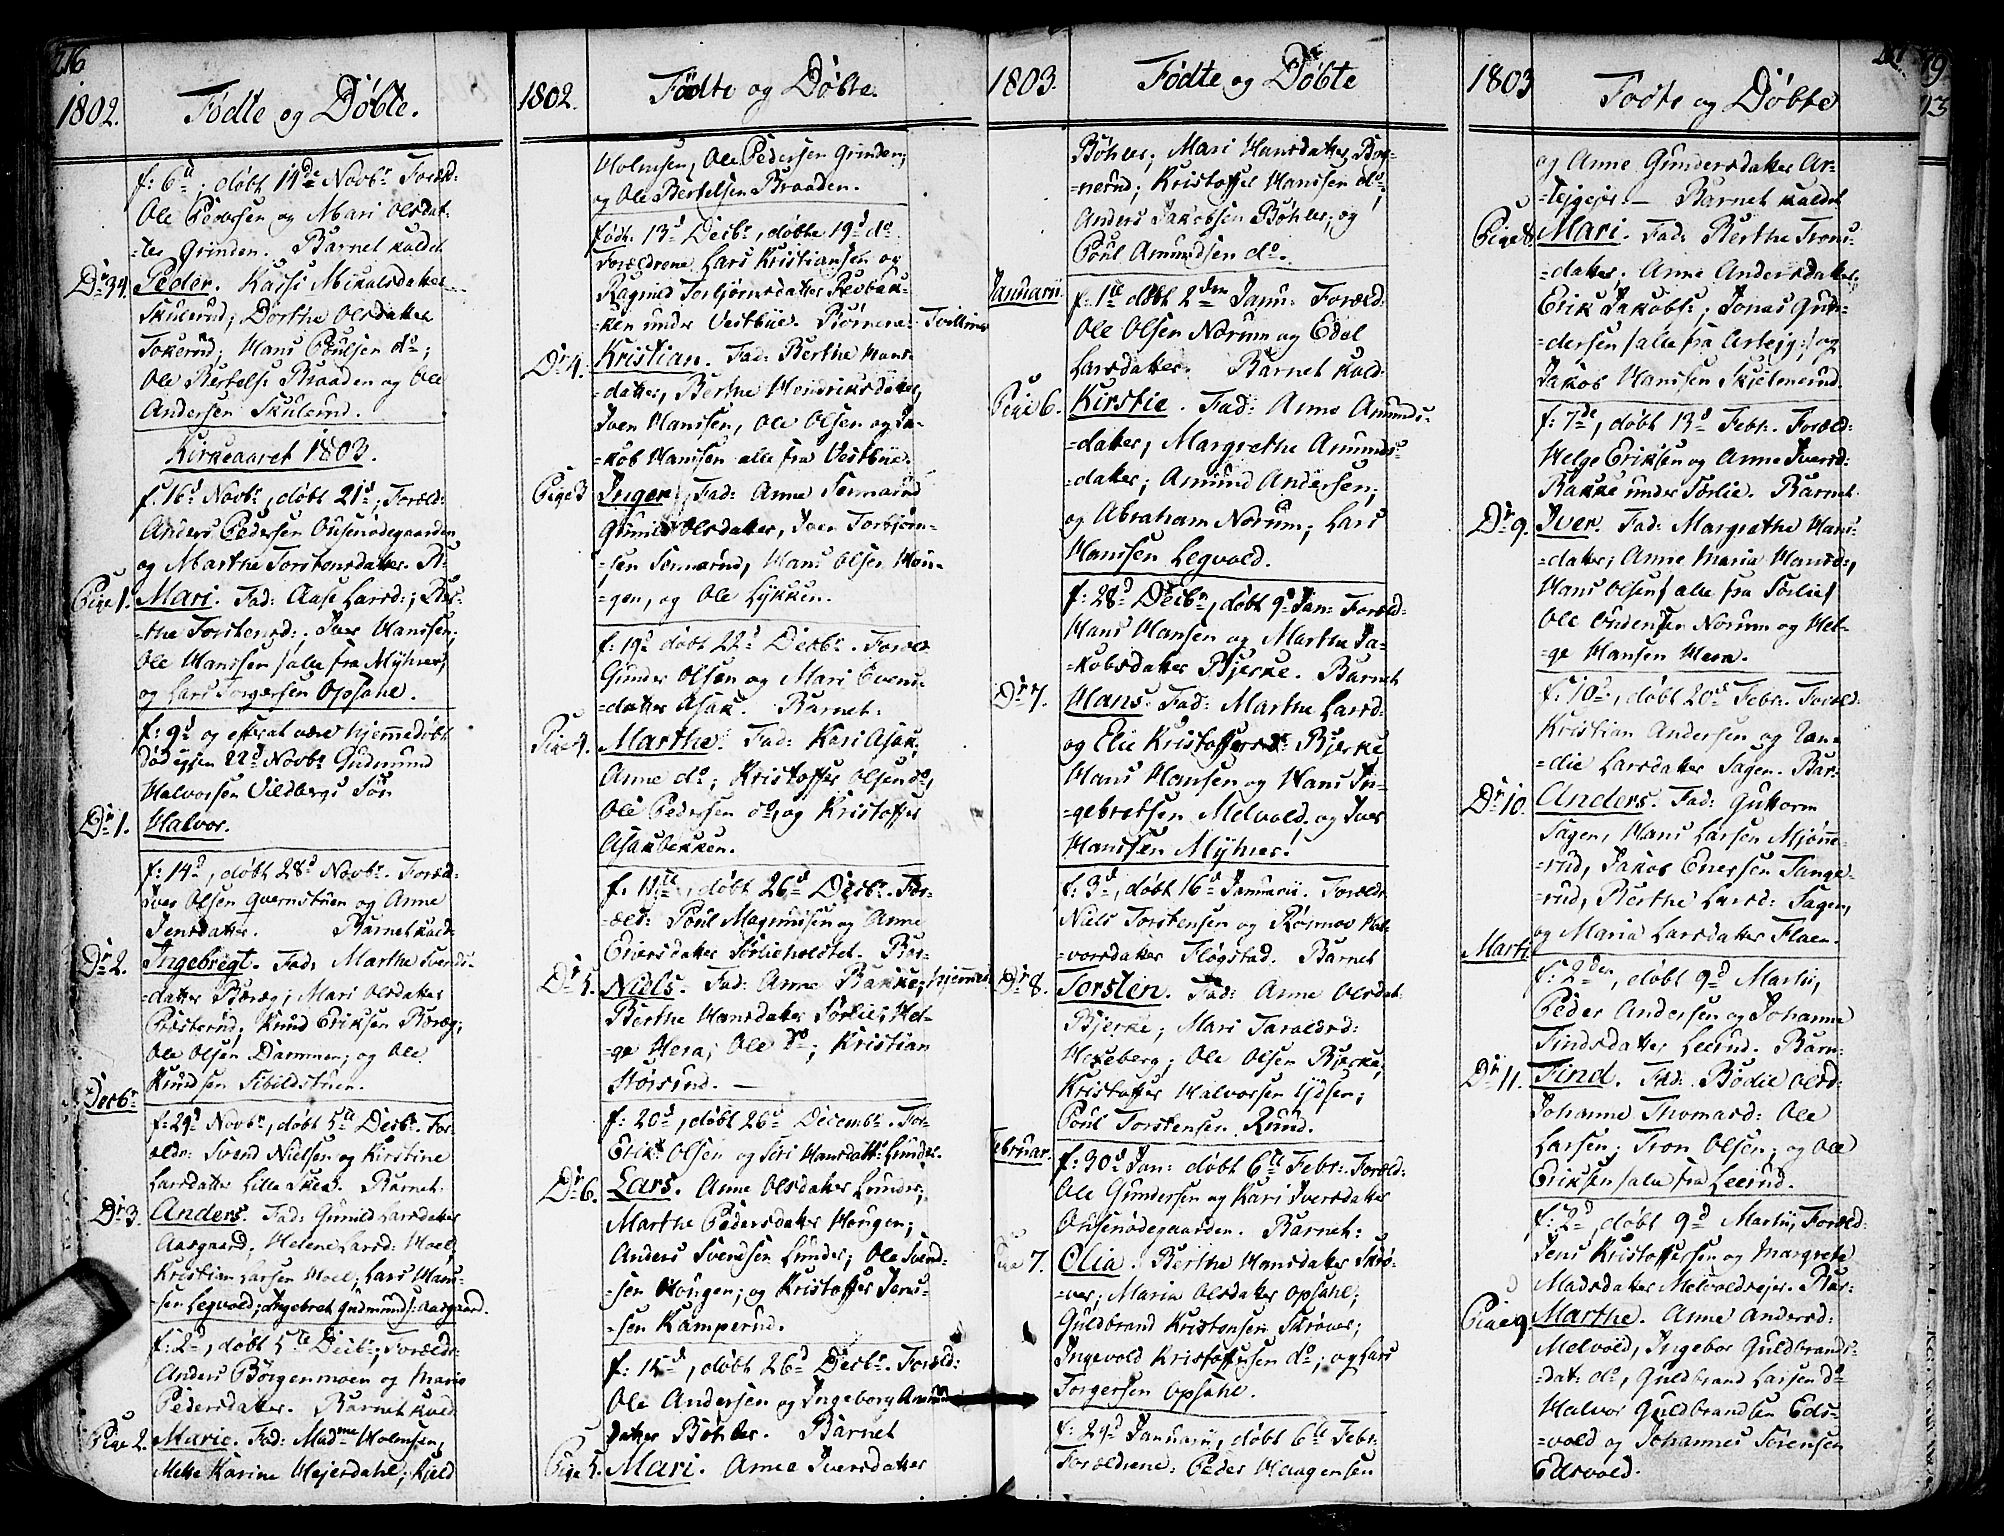 216
1802. Fødte og Døbte.
f: 6d, døbt 14de Novbr Foræld-
Ole Pedersen og Mari Olsdat-
-ter Grinden. Barnet kaldet
Dr 34. Peder. Kassi Mikalsdatter
Skulerud; Dorthe Olsdatter
Tokerud; Hans Poulsen do;
Ole Bertels: Braaden og Ole
Andersen Skulerud.
Kirkeaaret 1803.
f: 16d Novbr, døbt 21d, Foræld:
Anders Pedersen Ousenødegaarden
og Marthe Torstensdatter.
Pige 1. Mari. Fad: Aase Larsd:;
-the Torstensd:; Iver Hanssen;
Ole Hanssen /alle fra Myhrer/
og Lars Torgersen Opsahl.
f: 9d og efterat være hjemmedøbt
død igjen 22d Novbr Gudmund
Halvorsen Vildbergs Søn
Dr 1. Halvor.
f: 14d, døbt 28d Novbr. Foræld-
Iver Olsen Qvernstuen og Anne
Jensdatter. Barnet kald:
Dr 2. Ingebregt. Fad: Marthe Svends-
-datter Boræg; Mari Olsdatter
Præsterud; Knud Eriksen Boræg;
Ole Olsen Dammen; og Ole
Knudsen Sibildstuen.
Decbr
f: 29d Novbr, døbt 5te Decbr. For-
ældr: Svend Nielsen og Kirstine
Larsdatter Lille Skea. Barnet.
Dr 3. Anders. Fad: Gunild Larsdatter
Aasgaard, Helene Larsd: Moel,
Kristian Larsen Moel; Lars Hans-
-sen Legvold; Ingebret Gudmunds: Aasgaard.
f: 2d, døbt 5te Decbr, Forældr:
Anders Børgenmoen og Marie
Pedersdatter. Barnet kald
Pige 2. Marie. Fad: Madme Holmsen,
Mette Karine Mejerdahl; Kjeld
1802. Fødte og Døbte.
Holmsen; Ole Pedersen Grinden;
og Ole Bertelsen Braaden.
født. 13d Decbr, døbte 19d do.
Forældrene Lars Kristiansen og
Ragnild Torbjørnsdatter Revbak-
-ken under Vestbüe. Børnene. Tvilling
Dr 4. Kristian. Fad: Berthe Hans-
-datter, Berthe Hendriksdatter,
Iven Hanssen, Ole Olsen og Ja-
-kob Hanssen alle fra Vestbüe.
Pige 3 Inger. Fad: Anne Sonnarud
Gunild Olsdatter, Iver Torbjørn-
-sen Sonnarud, Hans Olsen Hou-
-gen, og Ole Lykken.
f: 19d døbt 22d Decbr. Foræld
Gunder Olsen og Mari Evens-
-datter Asak. Barnet:
Pige 4. Marthe. Fad: Kari Asak,
Anne do; Kristoffer Olsen do,
Ole Pedersen do, og Kristoffer
Asakbekken.
f: 11te, døbt 26d Decbr. For-
-æld: Poul Magnussen og Anne
Enersdatter Sørlieholdtet. Bar-
Dr 5. Niels. Fad: Anne Bakke, hjemmed
Berthe Hansdatter Sørlie; Hel-
-ge Hera; Ole do; Kristian
Størsrud. —
f: 20d, døbt 26d Decembr. For-
Erik Olsen og Siri Hansdattr Lunder.
Dr 6. Lars. Anne Olsdatter Lunder,
Marthe Pedersdatter Hougen;
Anders Svendsen Lunder; Ole Svend-
-sen Hougen; og Kristoffer Jens-
-sen Kamperud.
f: 15d, døbt 26d Decbr. Foræld:
Ole Andersen og Ingeborg Amund
datter Bøhler. Barnet
Pige 5. Mari. Anne Iversdatter
1803. Fødte og Døbte
Bøhler; Mari Hansdatter Bor-
-nerud; Kristoffer Hanssen do;
Anders Jakobsen Bøhler, og
Poul Amundsen do.
Januarii
f: 1te døbt 2den Janu: Foræld-
Ole Olsen Norum og Edel
Larsdatter. Barnet kald:
Pige 6. Kirstie. Fad: Anne Amunds-
-datter; Margrethe Amunds-
-datter; Amund Andersen;
og Abraham Norum; Lars
Hanssen Legvold.
f: 28d Decbr, døbt 9d Jan: Foræld-
Hans Hansen og Marthe Ja-
-kobsdatter Bjerke. Barnet
Dr 7. Hans. Fad: Marthe Larsd:
og Elie Kristoffersd: Bjerke
Hans Hansen og Hans In-
-gebretsen Melvold og Iver
Hanssen Myhrer.
f: 3d, døbt 16d Januarii. Forældr
Niels Torstensen og Rosmor Hal-
-vorsdatter Flogstad. Barnet
Dr 8. Torsten. Fad: Anne Olsdat:
Bjerke; Mari Taraldsd:
Hexeberg; Ole Olsen Bjerke,
Kristoffer Halvorsen Lydsen;
Poul Torstensen Rund.
Februar.
f: 30d Jan: døbt 6te Febr: Foræld:
Ole Gundersen og Kari Iversdatter
Ousenødegaarden. Barnet:
Pige 7. Olia. Berthe Hansdatter Skrø-
-ver; Maria Olsdatter Opsahl;
Guldbrand Kristensen Skrøver;
Ingevold Kristoffersen do; og Lars
Torgersen Opsahl.
f: 29d Januarii, døbt 6te Febr:
Forældrene: Peder Haagensen
217
1803 Fødte og Døbte
og Anne Gundersdatter Ar-
-tejgejer — Barnet kaldet
Pige 8. Mari. Fad: Berthe Trons-
-datter; Anne Andersdatter;
Erik Jakobs:; Jonas Gun-
-dersen /alle fra Artejg:/ og
Jakob Hanssen Skjelnerud.
f: 7de, døbt 13d Febr: Foræld:
Helge Eriksen og Anne Iversd:
Bakke under Sørlie. Barnet
Dr 9. Iver. Fad: Margrethe Hans-
-datter; Anne Maria Hansd:,
Hans Olsen / alle fra Sørlie /
Ole Norum og Hel-
-ge Hansen Hera.
f: 10d, døbt 20de Febr. Foræld:
Kristian Andersen og Ran-
-die Larsdatter Sagen. Bar-
Dr 10. Anders. Fad: Guttorm
Sagen, Hans Larsen Mjønne-
-rud, Jakob Enersen Tange-
-rud, Berthe Larsd: Sagen,
og Maria Larsdatter Flaen.
Marti
f: 2den, døbt 9d Martii,
Peder Andersen og Johanne
Findsdatter Leerud. Barn-
Dr 11. Find. Fad: Bodil Olsd:
Johanne Thomasd: Ole
Larsen; Tron Olsen; og Ole
Eriksen /alle fra Leerud.
f: 2d, døbt 9d Martii, Foræld:
Jens Kristoffersen og Margrete
Madsdatter Melvoldsejer. Bar-
Pige 9. Marthe. Anne Andersd:
Melvold, Ingebor Guldbrands-
-dat: do, Guldbrand Larsen do
Halvor Guldbrandsen Eds-
-vold og Johannes Sørensen
Edsvold.